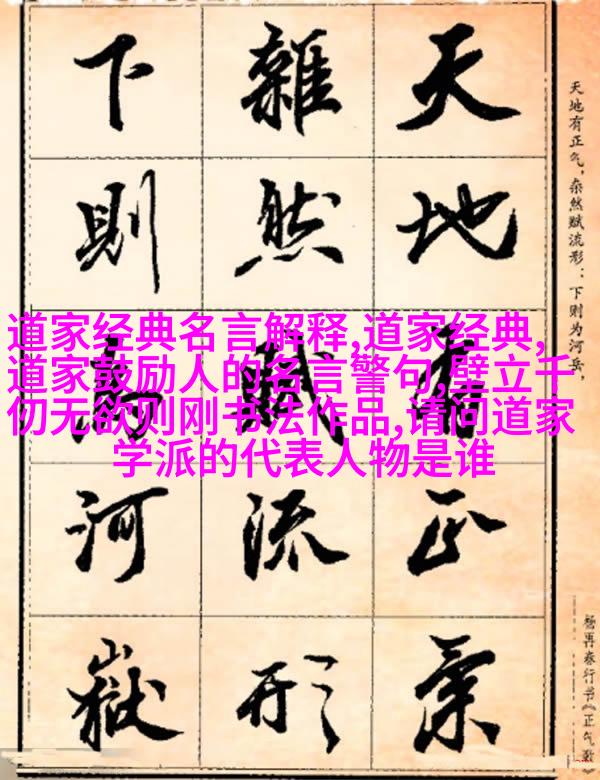 道家经典名言解释,道家经典,
道家鼓励人的名言警句,壁立千
仞无欲则刚书法作品,请问道家
学派的代表人物是谁
天地有正氣
雜然賦流形
下則為河嶽
天地有正气，杂然赋流形：下则为河岳，
杨再春行书《正气歌》